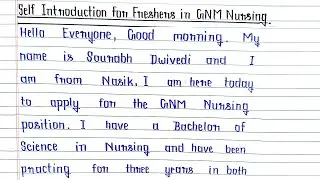 Self Introduction for Freshers in GNM Nursing.
Hello Everyone, Good morning. My
name is Sourabh Dwivedi and I
am from Nasik, I am here today
to apply for the GNM Nursing
position. I have a Bachelor of
Science in Nursing and have been
practing for three years in both